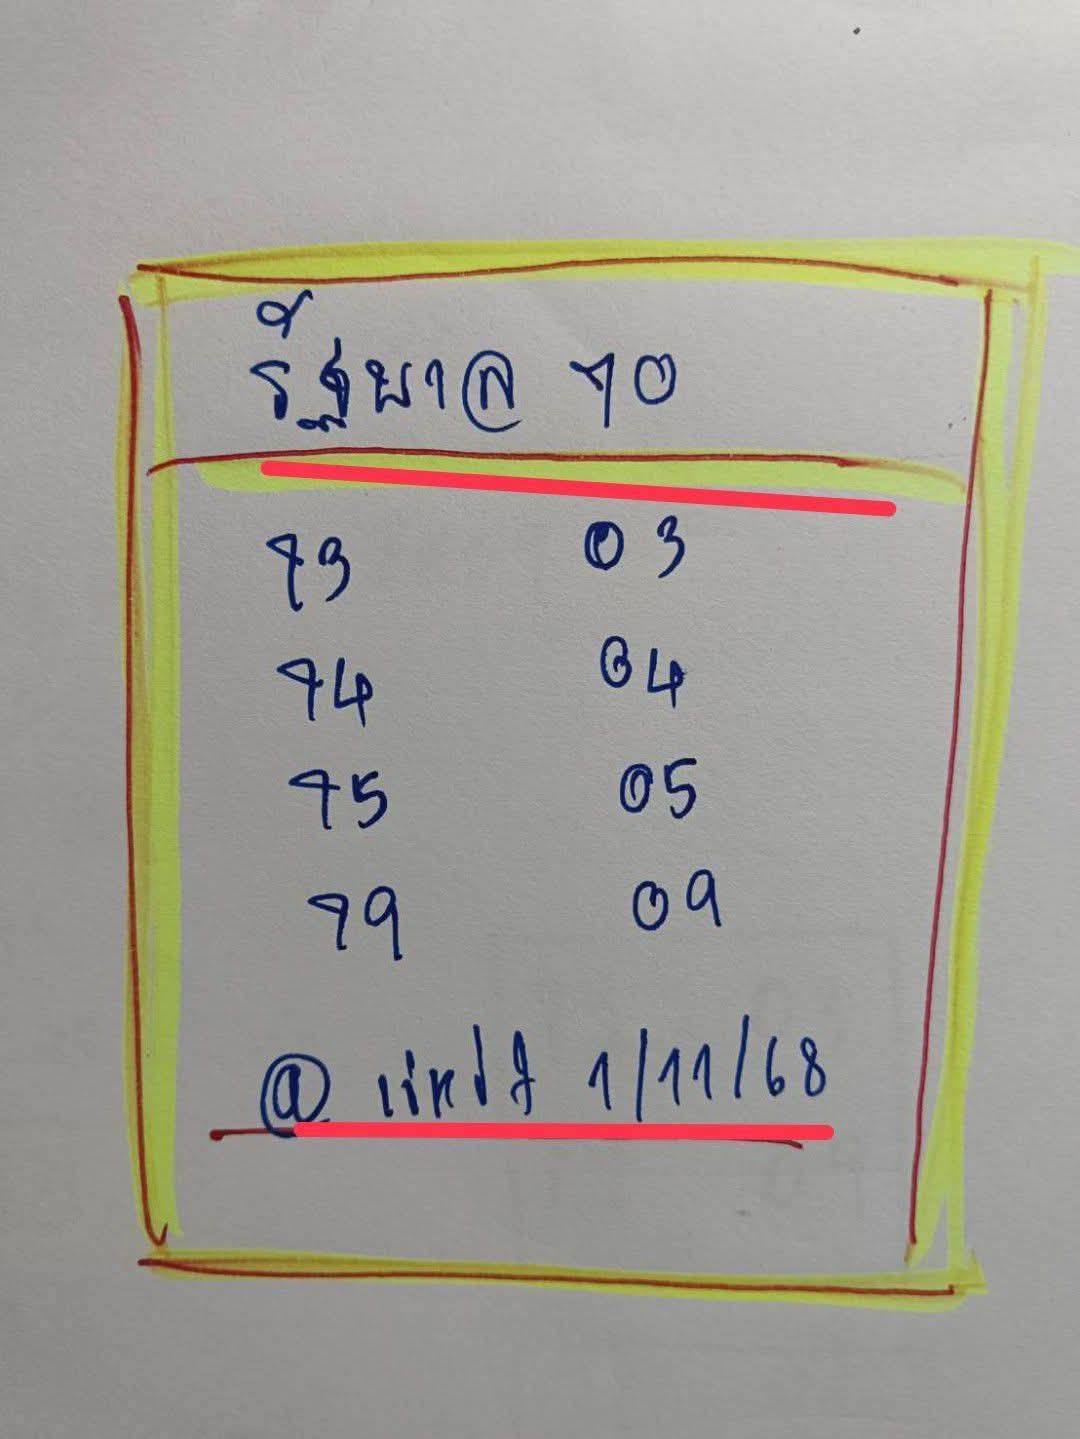 รัฐบาล 70
73 03
74 04
75 05
79 09
@ 1/11/68